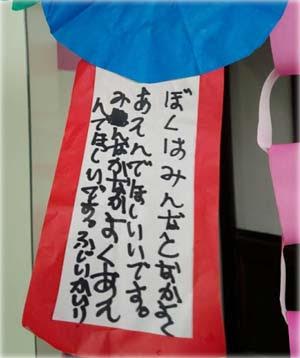 ぼくはみんなとなかよく
あえんでほしいいです。
みんながなかよくあえ
んでほしいです。ふじいかいり